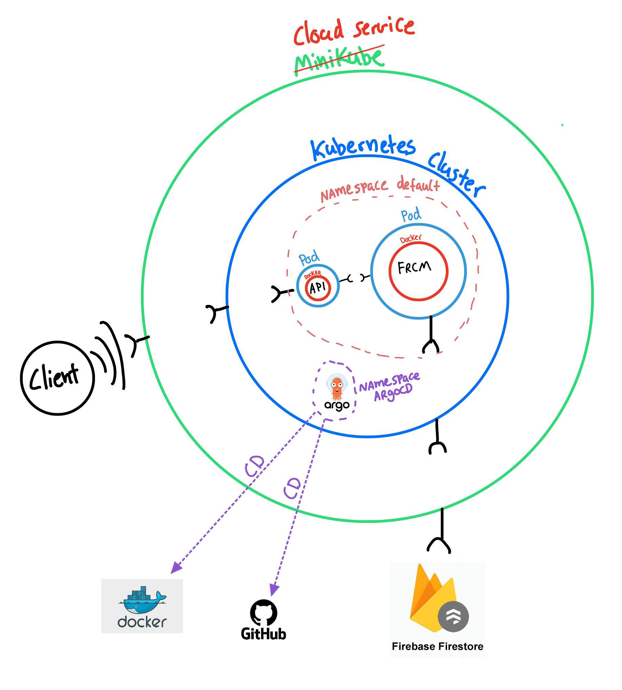 Cloud service
MiniKube
Kubernetes Cluster
Namespace default
Pod
Docker
FRCM
Pod
Docker
API
Client
argo
Namespace
ArgoCD
CD
CD
docker
GitHub
Firebase Firestore